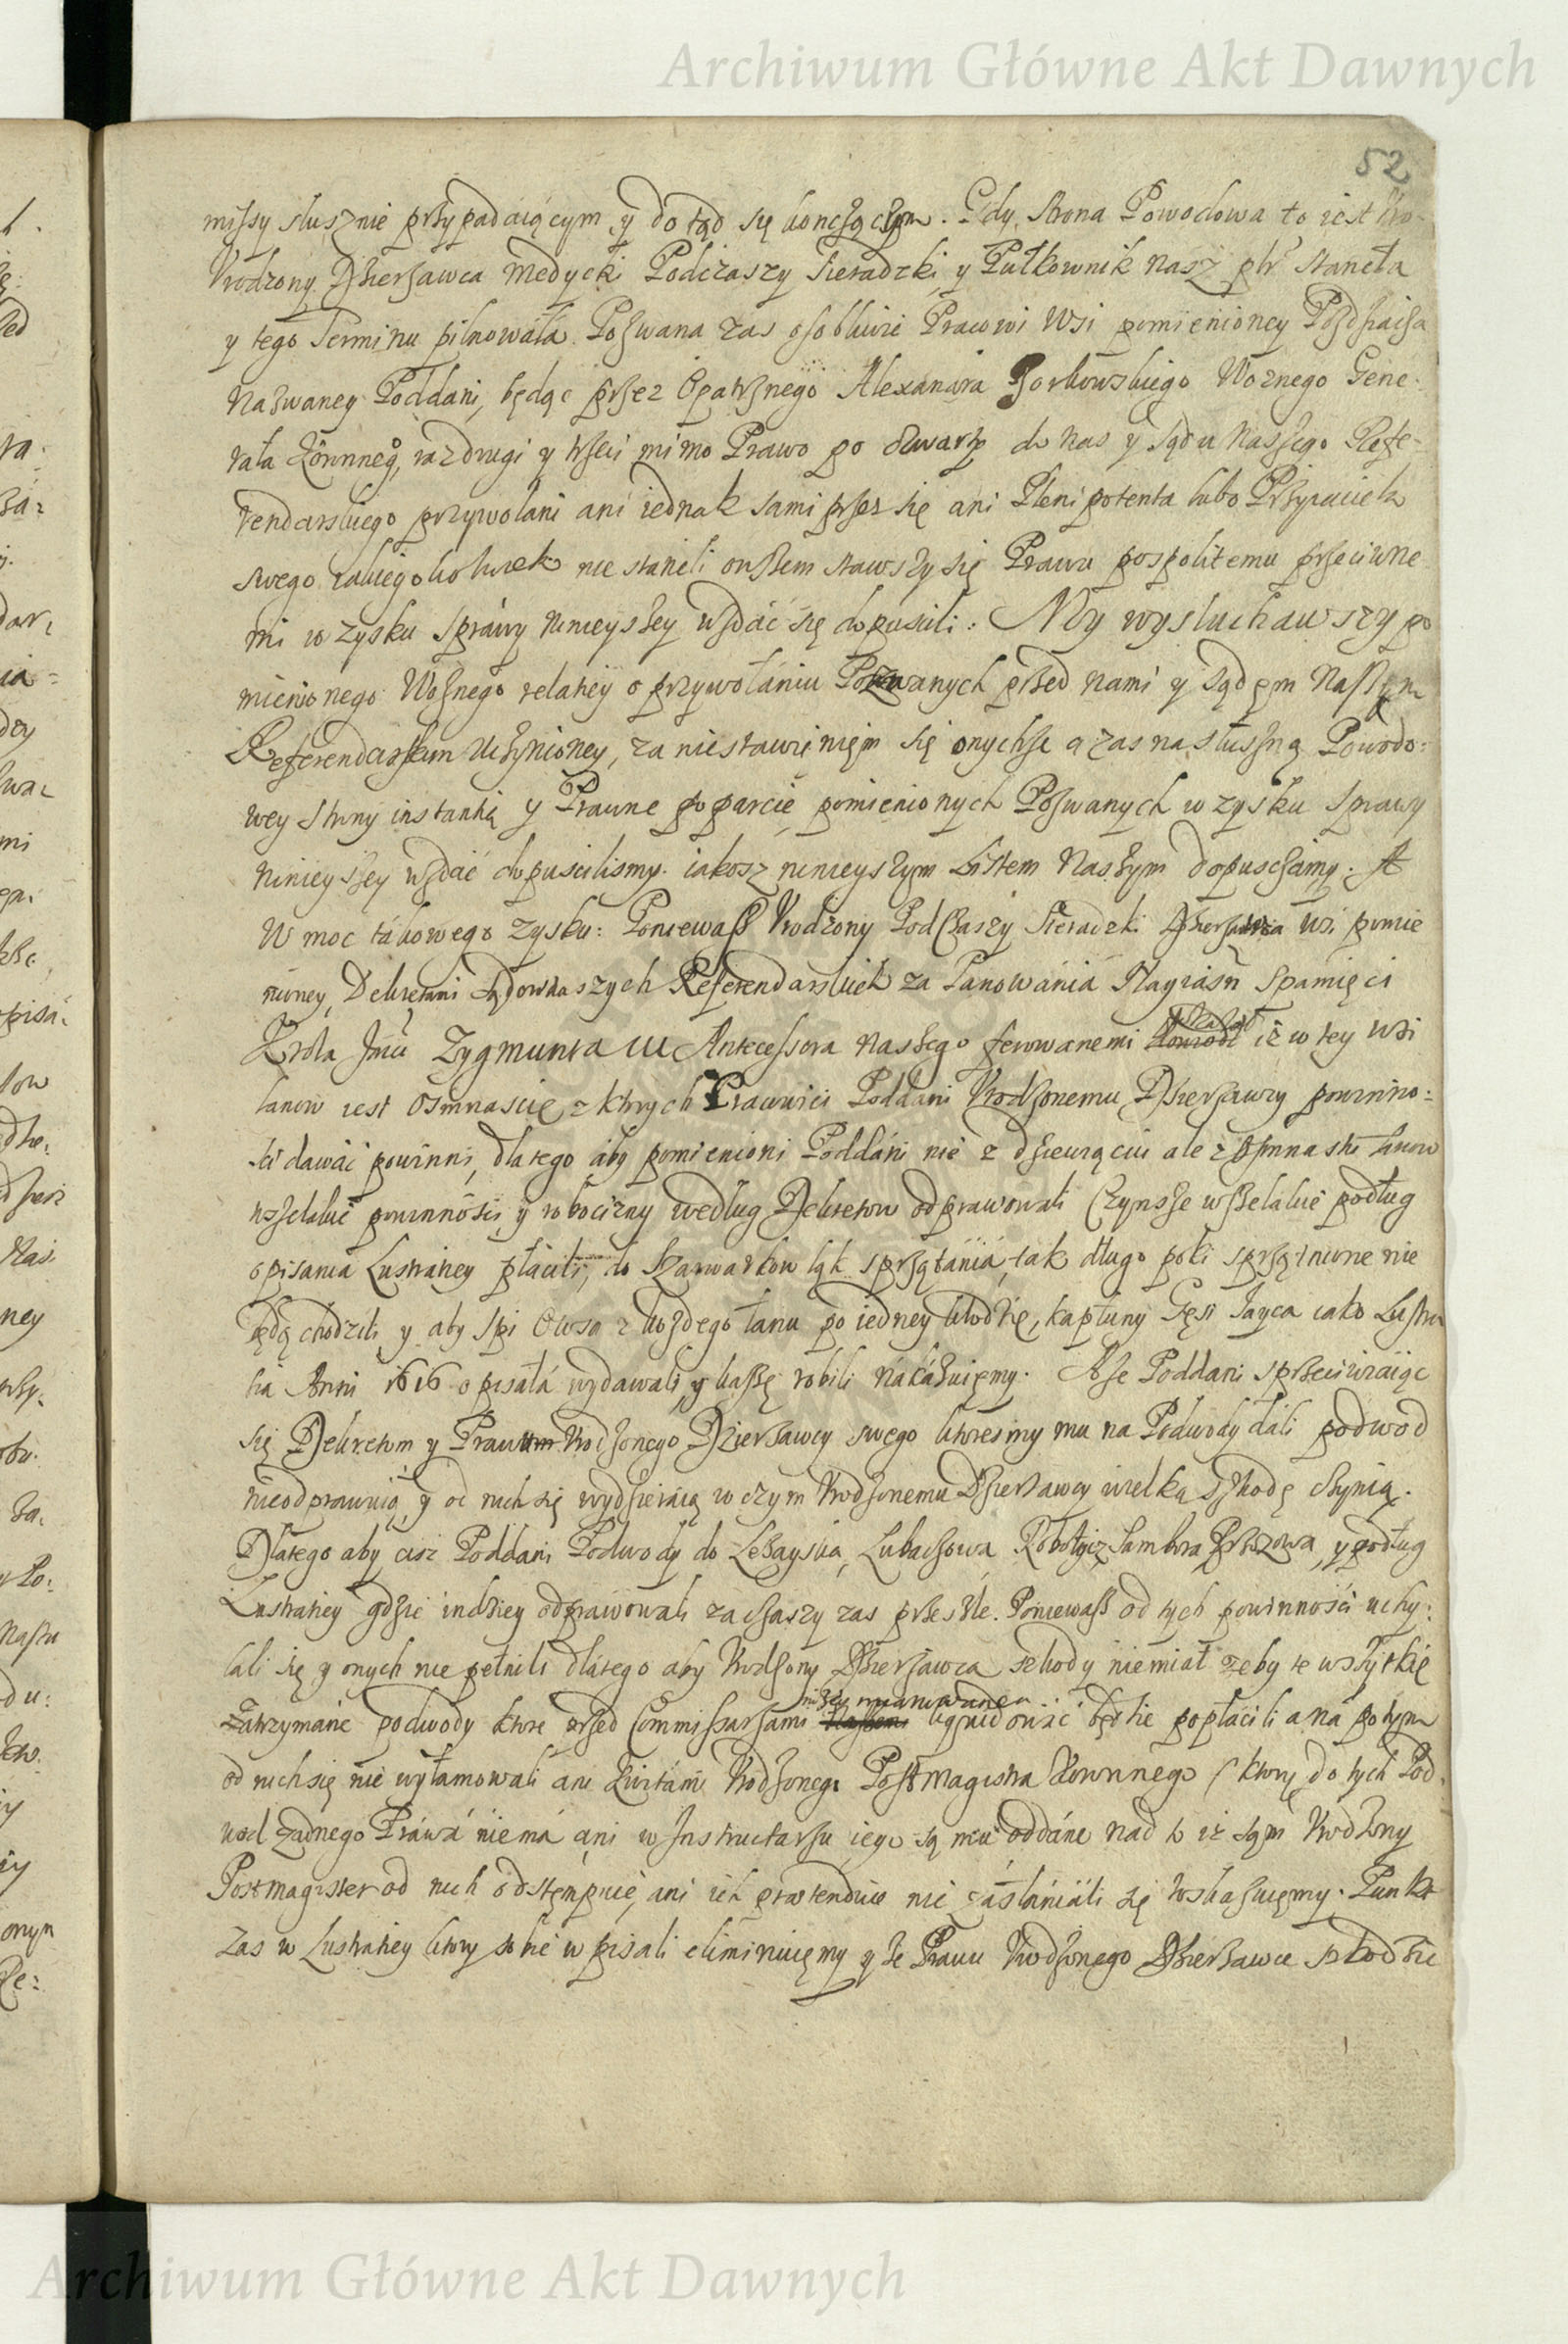 Archiwum Główne Akt Dawnych
52
missy slusznie przypadaiącym y do tąd się konczącym. Gdy Strona Powodowa to iest Uro-
Urodzony Dzierzawca Medycki Podczaszy Sieradzki y Pułkownik Nasz ptr staneła
y tego Terminu pilnowała. Pozwana zas osobliwie Pracowi Wsi pomienioney Pozdziacza
Nazwaney Poddani, będąc przez Opatrznego Alexandra Woznego Gene-
rała Koronneg, raz drugi y trzeci mimo Prawo po otwarty do Nas y Sądu Naszego Refe-
rendarskiego przywołani ani iednak sami przez się ani Plenipotenta lubo Przyiaciela
swego iakiegokolwiek nie staneli owszem stawszy się Prawu pospolitemu przeciwne
mi w zysku sprawy ninieyszey wzdać się dopuscili. My wysluchawszy po
mienionego Woznego relatiey o przywołaniu Pozwanych przed nami y Sądem Naszym
Referendarskim uczynioney, za niestawieniem się onychze a zas na słuszną Powodo-
wey Strony instantią y Prawne poparcie pomienionych Pozwanych w zysku Sprawy
ninieyszey wzdać dopuscilismy. iakosz ninieyszym Listem Naszym dopuszczamy. A
W moc takowego zysku: Poniewasz Urodzony Podczaszy Sieradzki Dzierzawca wsi pomie
nioney, Dekretami Sądow naszych Referendarskich za Panowania Nayiasn S pamięci
Krola Jmci Zygmunta III Antecessora Naszego ferowanemi iż w tey wsi
łanow iest Osmnascie z ktorych Pracowici Poddani Urodzonemu Dzierzawcy powinno-
sci dawać powinni, dlatego aby pomienioni Poddani nie z dziewiąciu ale z Osmnastu łanow
wszelakie powinności y robocizny według Dekretow odprawowali Czynsze wszelakie podług
opisania Lustratiey płacili, do Szarwarkow łąk sprzątania, tak długo poki sprzątnione nie
będą chodzili y aby Spi Owsa z kozdego łanu po iedney kłodzie, kapłuny Gęsi Jayca iako Lustra
tia Anni 1616 opisała wydawali, y kaszę robili nakazuięmy. A ze Poddani sprzeciwiaiąc
się Dekretom y Prawom Urodzonego Dzierzawcy swego ktoresmy mu na Podwody dali podwod
nieodprawuią, y od nich się wydzieraią w czym Urodzonemu Dzierzawcy wielką szkodę czynią.
Dlatego aby cisz Poddani Podwody do Lezayska, Lubaczowa Sambora y podług
Lustratiey gdzie indziey odprawowali za czaszy zas przeszłe. Poniewasz od tych powinności uchy-
lali się y onych nie pełnili dlatego aby Urodzony Dzierzawca szkody niemiał zeby te wszytkie
zatrzymane podwody ktore przed Commissarzami nizey mianowanemi liquidować będzie popłacili a na potym
od nich się nie wyłamowali ani kwitami Urodzonego Postmagistra Koronnego (ktory do tych Pod-
wod zadnego Prawa niema ani w Instructarzu iego są mu oddane nad to iz sąm Urodzony
Postmagister od nich odstępuie, ani ich praetenduie nie zasłaniali się wskazuięmy. Punkt
zas w Lustratiey ktory sobie wpisali eliminuięmy y ze Prawu Urodzonego Dzierzawce szkodzic
Archiwum Główne Akt Dawnych